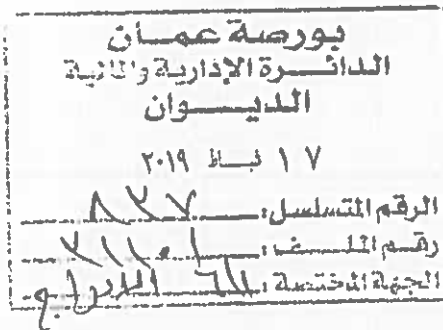 بورصة عمان
الدائرة الإدارية والمالية
الديوان
١٧ شباط ٢٠١٩
الرقم المتسلسل: ٨٢٧
رقم الملف:
الجهة المختصة: